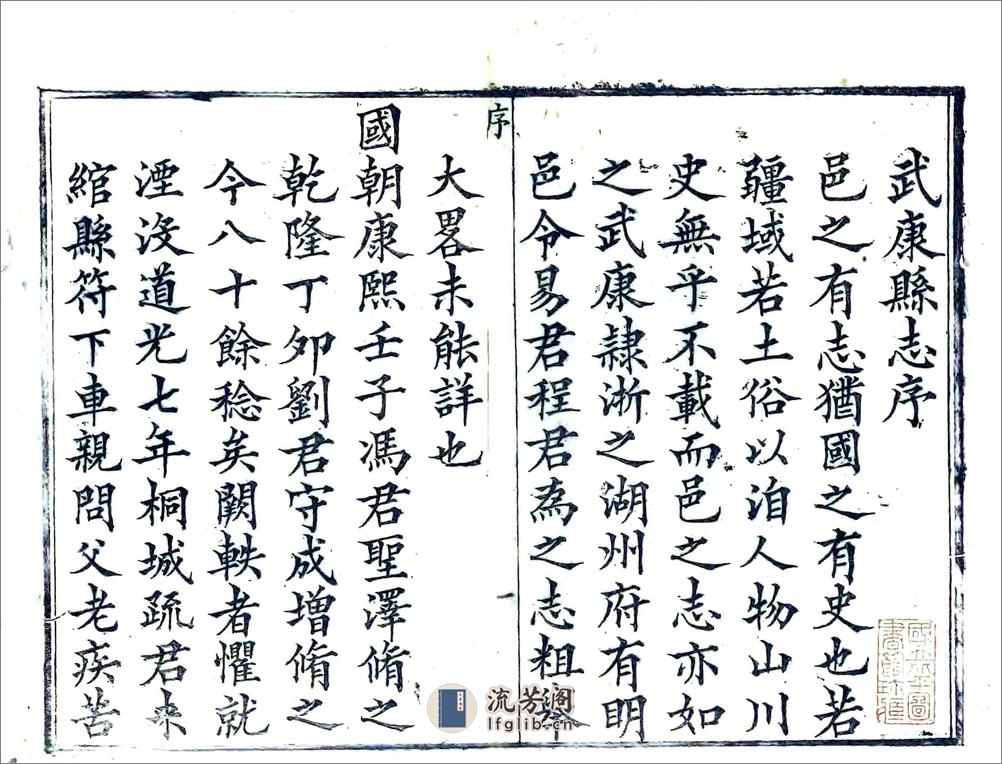 武康縣志序
邑之有志猶國之有史也若
疆域若土俗以洎人物山川
史無乎不載而邑之志亦如
之武康隷浙之湖州府有明
邑令易君程君為之志粗
序
一
大畧未能詳也
國朝康熙壬子馮君聖澤脩之
乾隆丁夘劉君守成增脩之
今八十餘稔矣闕軼者懼就
湮沒道光七年桐城疏君来
綰縣符下車親問父老疾苦
流芳阁
lfglib.cn